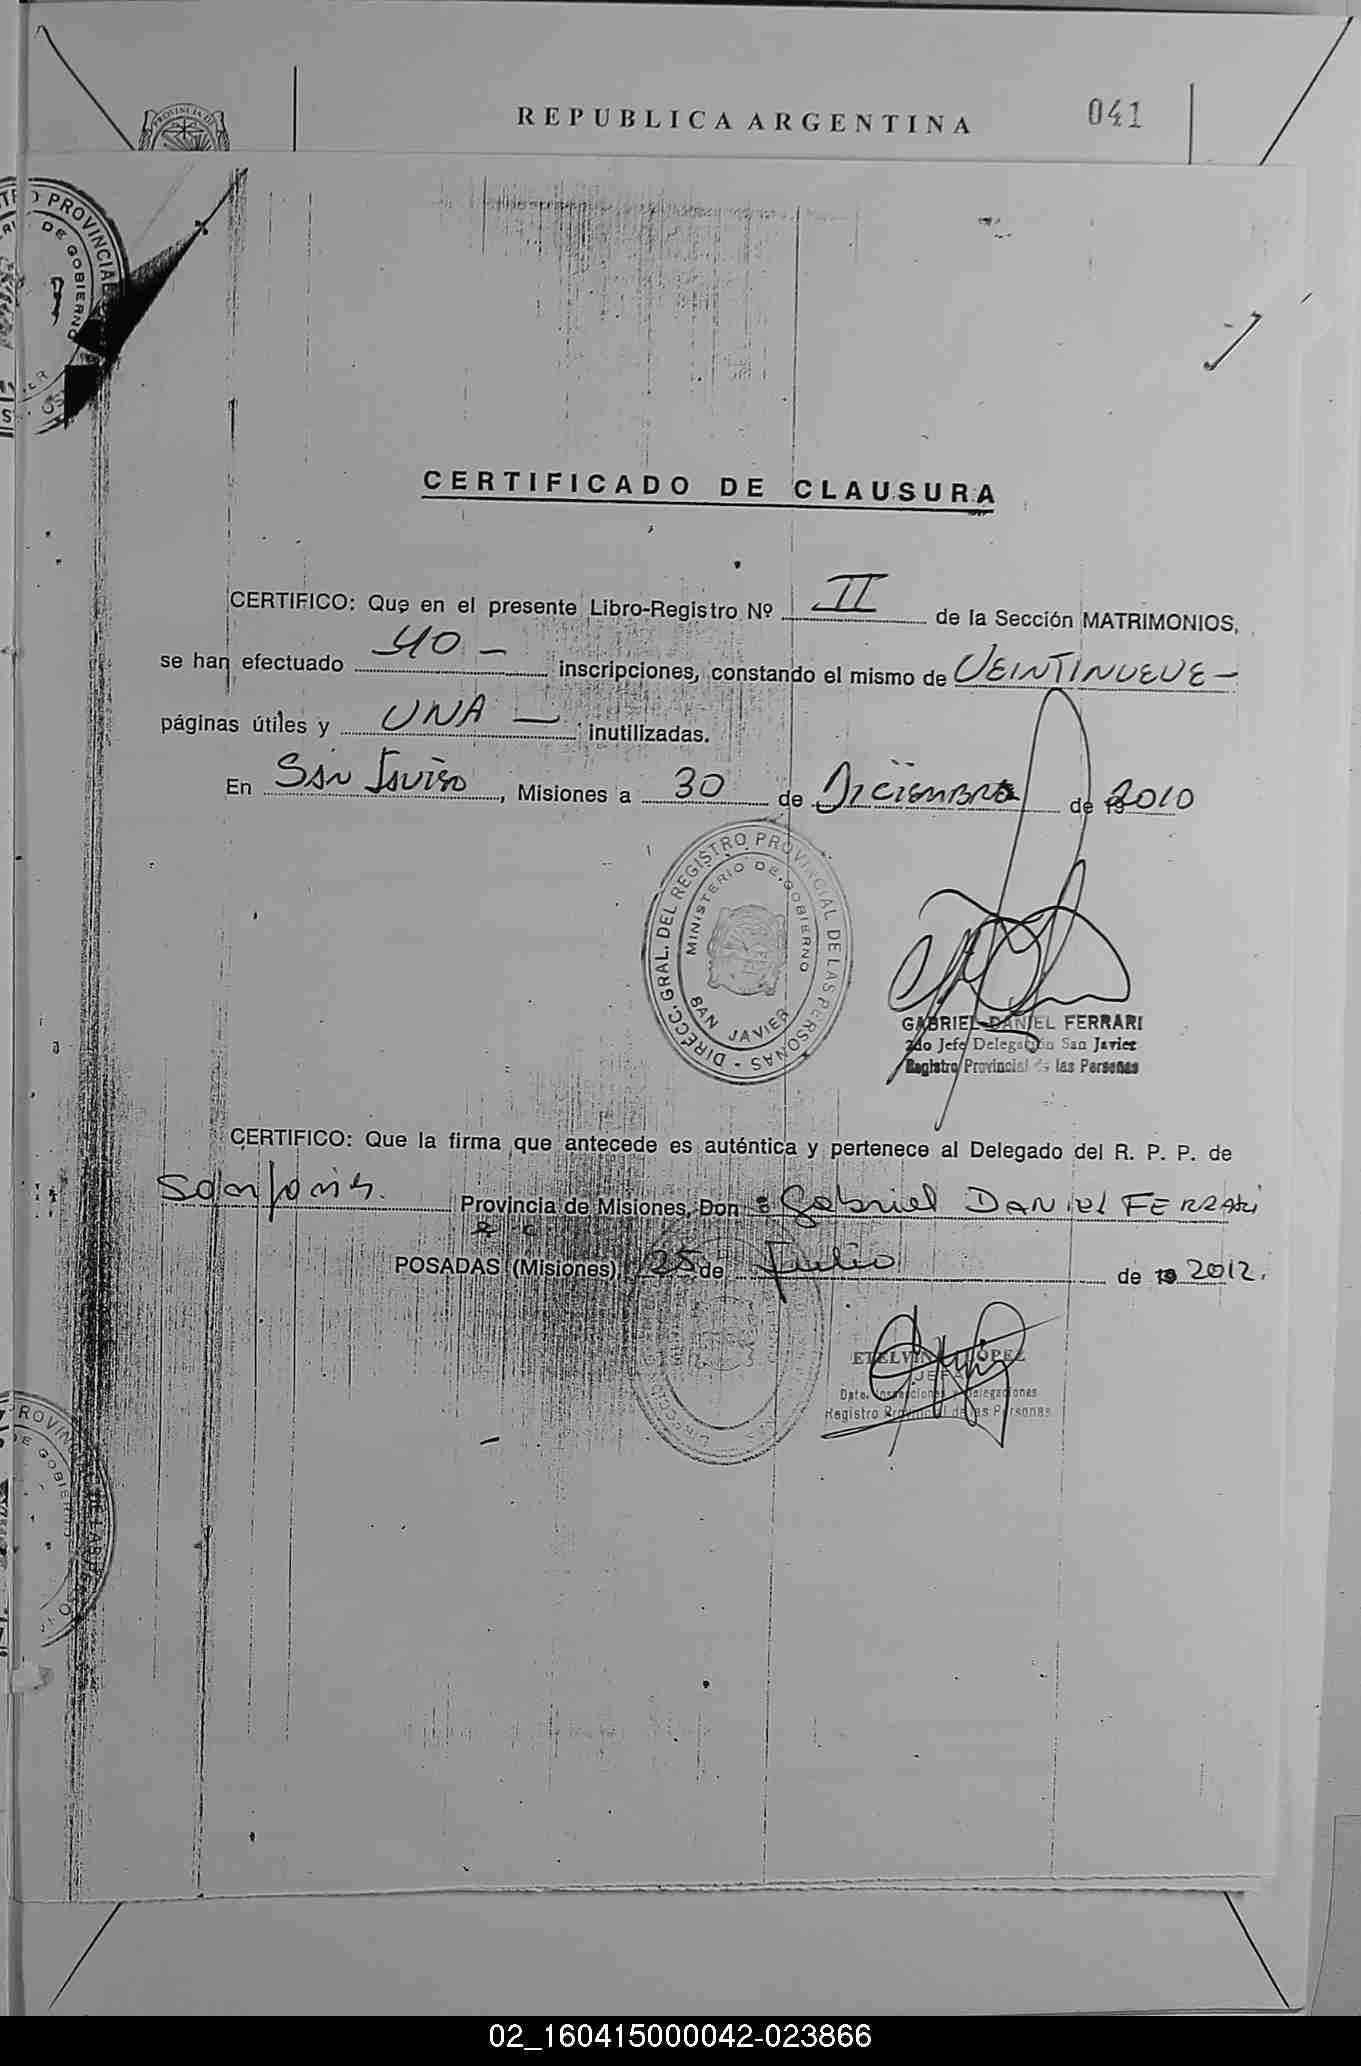 REPUBLICA ARGENTINA
041
PROVINCIA DE
CERTIFICADO DE CLAUSURA
CERTIFICO: Que en el presente Libro-Registro Nº II de la Sección MATRIMONIOS,
se han efectuado 40 - inscripciones, constando el mismo de VEINTINUEVE -
páginas útiles y UNA - inutilizadas.
En SAN Javier, Misiones a 30 de Diciembre de 2010
DIRECC. GRAL. DEL REGISTRO PROVINCIAL DE LAS PERSONAS -
MINISTERIO DE GOBIERNO
SAN JAVIER
GABRIEL DANIEL FERRARI
2do Jefe Delegación San Javier
Registro Provincial de las Personas
CERTIFICO: Que la firma que antecede es auténtica y pertenece al Delegado del R. P. P. de
Provincia de Misiones, Don Gabriel DANIEL FERRARI
POSADAS (Misiones), 25 de Julio de 19 2012.
LOPEZ
JEFA
Registro Provincial de las Personas
PROVINCIAL
DE GOBIERNO
02_160415000042-023866